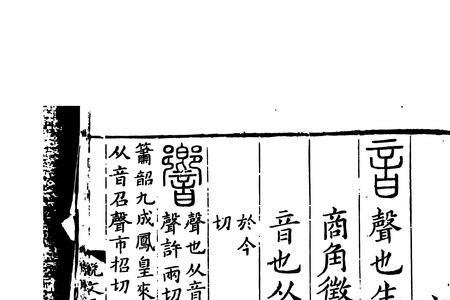 音聲也生
商角徵
音也从
於今
切
響聲也从音
聲許兩切
簫韶九成鳳皇來
从音召聲市招切
說文